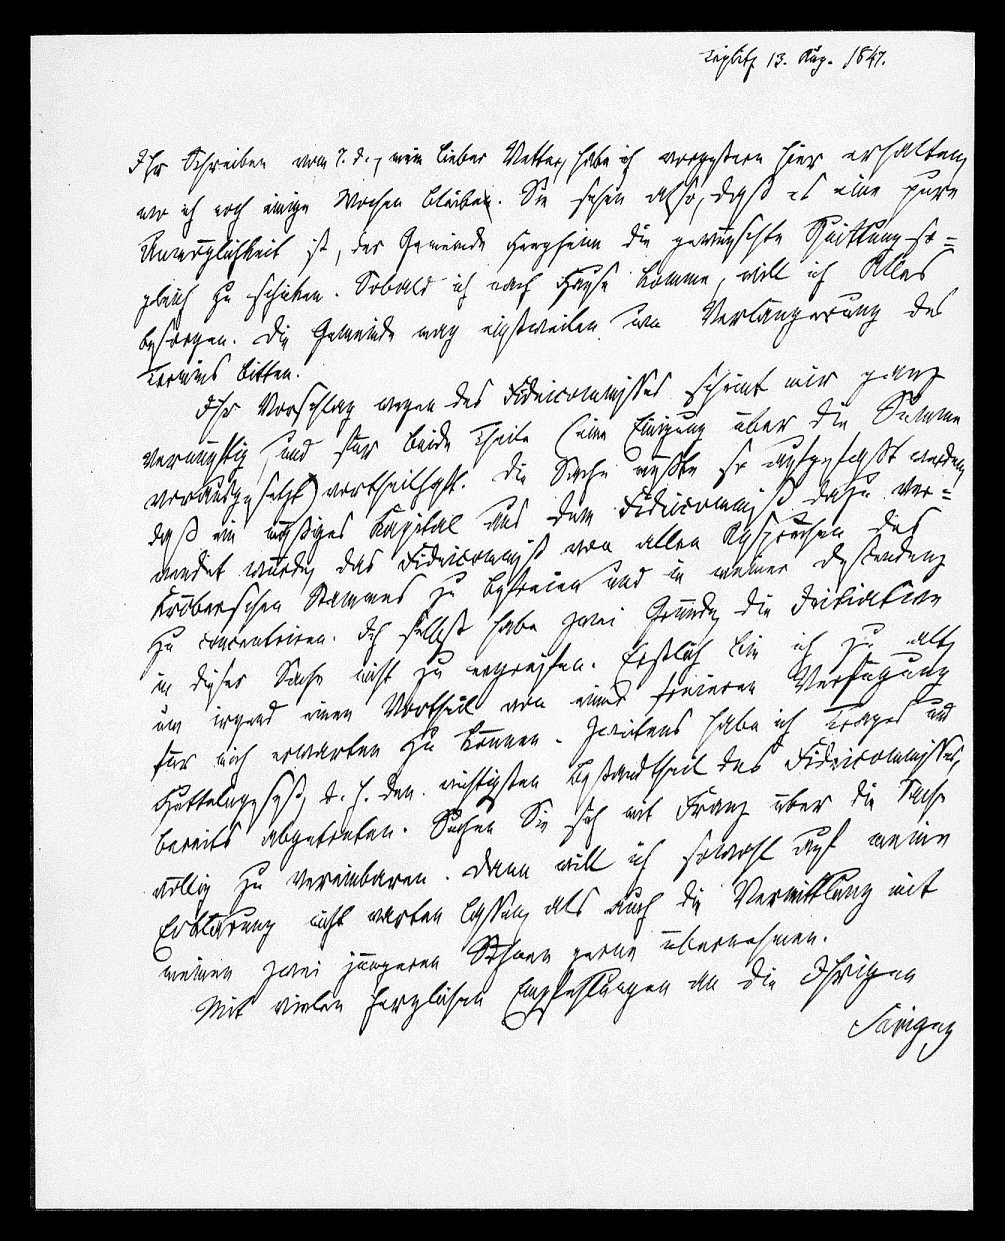 Teplitz 13. Aug. 1847.
Ihr Schreiben vom 7. d., mein lieber Vetter, habe ich vorgestern hier erhalten,
wo ich noch einige Wochen bleibe. Sie sehen also, daß es eine pure
Unmöglichkeit ist, der Gemeinde die gewünschte Quittung so=
gleich zu schicken. Sobald ich nach Hause komme, will ich Alles
besorgen. Die Gemeinde mag einstweilen um Verlängerung des
Termins bitten.
Ihr Vorschlag wegen des Fideicommisses scheint mir ganz
vernünftig und für beide Theile (eine Einigung über die Summe
vorausgesetzt) vortheilhaft. Die Sache müßte so aufgefaßt werden,
daß ein mäßiges Kapital aus dem Fideicommiß dazu ver=
wendet würde, das Fideicommiß von allen Ansprüchen des
Stammes zu befreien und in meiner Descendenz
zu concentriren. Ich selbst habe zwei Gründe, die Initiative
in dieser Sache nicht zu ergreifen. Erstlich bin ich zu alt,
um irgend einen Vortheil von einer freieren Verfügung
für mich erwarten zu können. Zweitens habe ich Trages und
Hüttelngesäß, d. h. den wichtigsten Bestandtheil des Fideicommisses,
bereits abgetreten. Suchen Sie sich mit Franz über die Sache
völlig zu vereinbaren. Dann will ich sowohl auf meine
Erklärung nicht warten lassen, als auch die Vermittlung mit
meinen zwei jüngeren Söhnen gerne übernehmen.
Mit vielen herzlichen Empfehlungen an die Ihrigen
Savigny